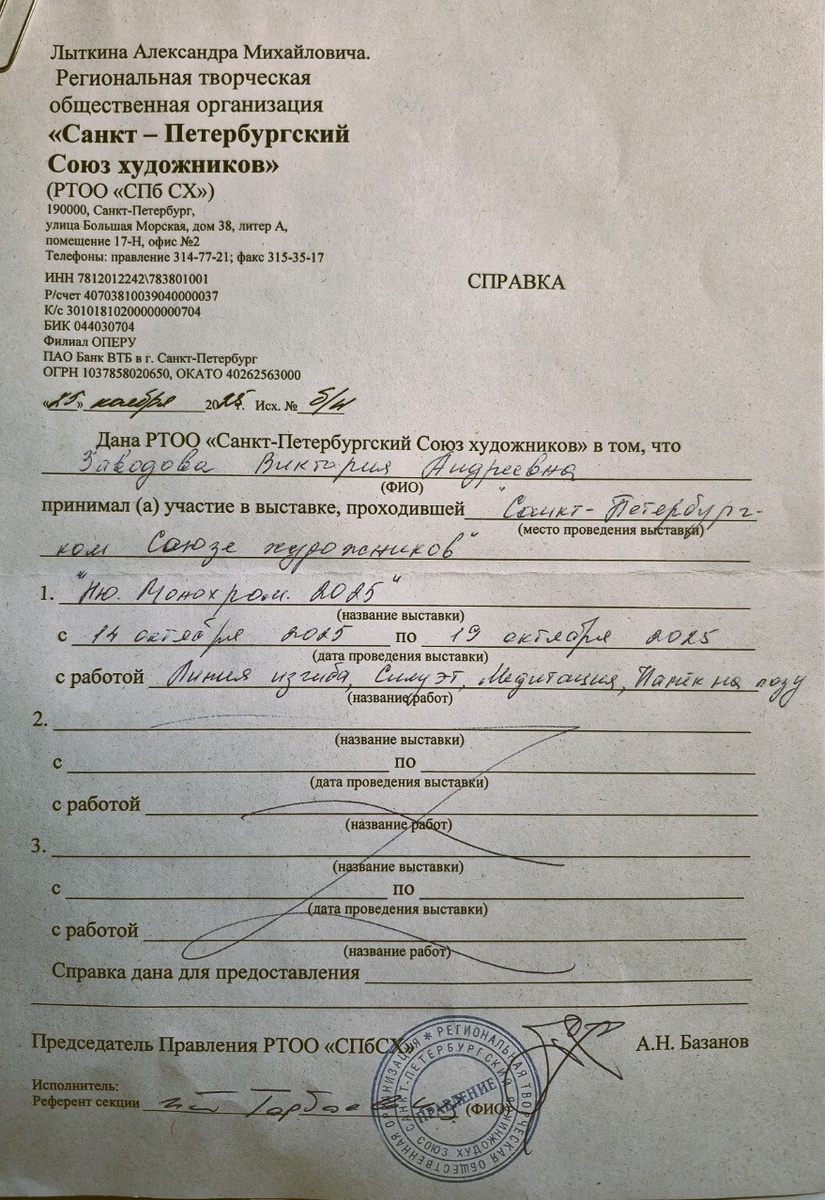 Лыткина Александра Михайловича.
Региональная творческая
общественная организация
«Санкт – Петербургский
Союз художников»
(РТОО «СПб СХ»)
190000, Санкт-Петербург,
улица Большая Морская, дом 38, литер А,
помещение 17-Н, офис №2
Телефоны: правление 314-77-21; факс 315-35-17
ИНН 7812012242\783801001
Р/счет 40703810039040000037
К/с 30101810200000000704
БИК 044030704
Филиал ОПЕРУ
ПАО Банк ВТБ в г. Санкт-Петербург
ОГРН 1037858020650, ОКАТО 40262563000
СПРАВКА
«25» ноября 2025. Исх. № б/н
Дана РТОО «Санкт-Петербургский Союз художников» в том, что
Заводова Виктория Андреевна
(ФИО)
принимал (а) участие в выставке, проходившей "Санкт-Петербург-
(место проведения выставки)
ком Союзе художников"
1. "Ню. Монохром. 2025"
(название выставки)
с 14 октября 2025 по 19 октября 2025
(дата проведения выставки)
с работой Линия изгиба, Силуэт, Медитация, на
(название работ)
2.
(название выставки)
с по
(дата проведения выставки)
с работой
(название работ)
3.
(название выставки)
с по
(дата проведения выставки)
с работой
(название работ)
Справка дана для предоставления
Председатель Правления РТОО «СПбСХ» А.Н. Базанов
Исполнитель:
Референт секции (ФИО)
РЕГИОНАЛЬНАЯ ТВОРЧЕСКАЯ ОБЩЕСТВЕННАЯ ОРГАНИЗАЦИЯ
САНКТ-ПЕТЕРБУРГСКИЙ СОЮЗ ХУДОЖНИКОВ
ПРАВЛЕНИЕ